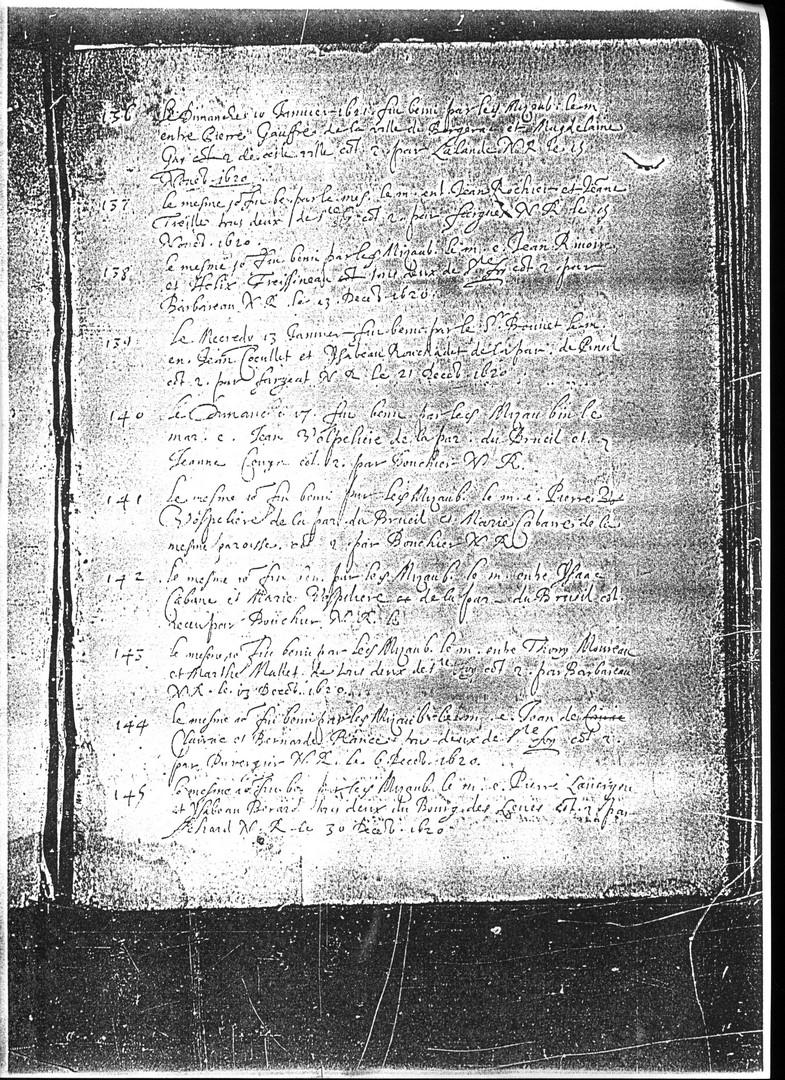 136 Le Dimanche 10 Janvier 1621 fut beni par led Mizaub. le m.
entre Pierre Gauffre de la ville de Bergerac et Magdelaine
de cette ville cot. 2. par Lalande N. R. le 15
Novēb. 1620
137 le mesme jo fut be. par le mes. le m. ent. Jean Rochier et Jeane
Treille tous deux de Ste foy cot. 2. par N. R. le 15
Novēb. 1620.
138 le mesme jo fut beni par led Mizaub. le m. e. Jean Rimoire
et Helix Freissineau tous deux de Ste foy cot. 2 par
Barbareau N. R. le 13. Decēb 1620.
139 Le Mecredy 13 Janvier fut beni par le Sr Bonnet le m.
en. Jean Coeullet et Ysabeau de la par. de Pineil
cot. 2. par Sargeat N. R. le 21 Decēb. 1620
140 le Dimanc e 17. fut beni par led Mizaubin le
mar. e. Jean Volpeliere de la par. du Brueil et
Jeanne cot. 2. par Bouchier N. R.
141 Le mesme jo fut beni par led Mizaub. le m. e. Pierre
Vospeliere de la par. du Brueil et Marie Cabane de la
mesme paroisse. cot 2 par Bouchier N. R.
142 le mesme jo fut ben. par led Mizaub. le m. entre Ysaac
Cabane et Marie de la par du Brueil cot.
receu par Bouchier. N. R. le
143 le mesme jo fut beni par led Mizaub. le m. entre Thony Moureau
et Marthe Mallet de tous deux de Ste foy cot 2. par Barbareau
N. R. le 13 Decēb. 1620.
144 le mesme jo fut beni par led Mizaub. le m. e. Jean de
Clairac et Bernarde Rance tous deux de Ste foy cot 2.
par Duverguir N. R. le 6 Decēb. 1620.
145 le mesme jo fut be. par led Mizaub. le m. e. Pierre
et Ysabeau Berard tous deux du Bourg des Leues cot. 2 par
N. R. le 30 Decēb. 1620